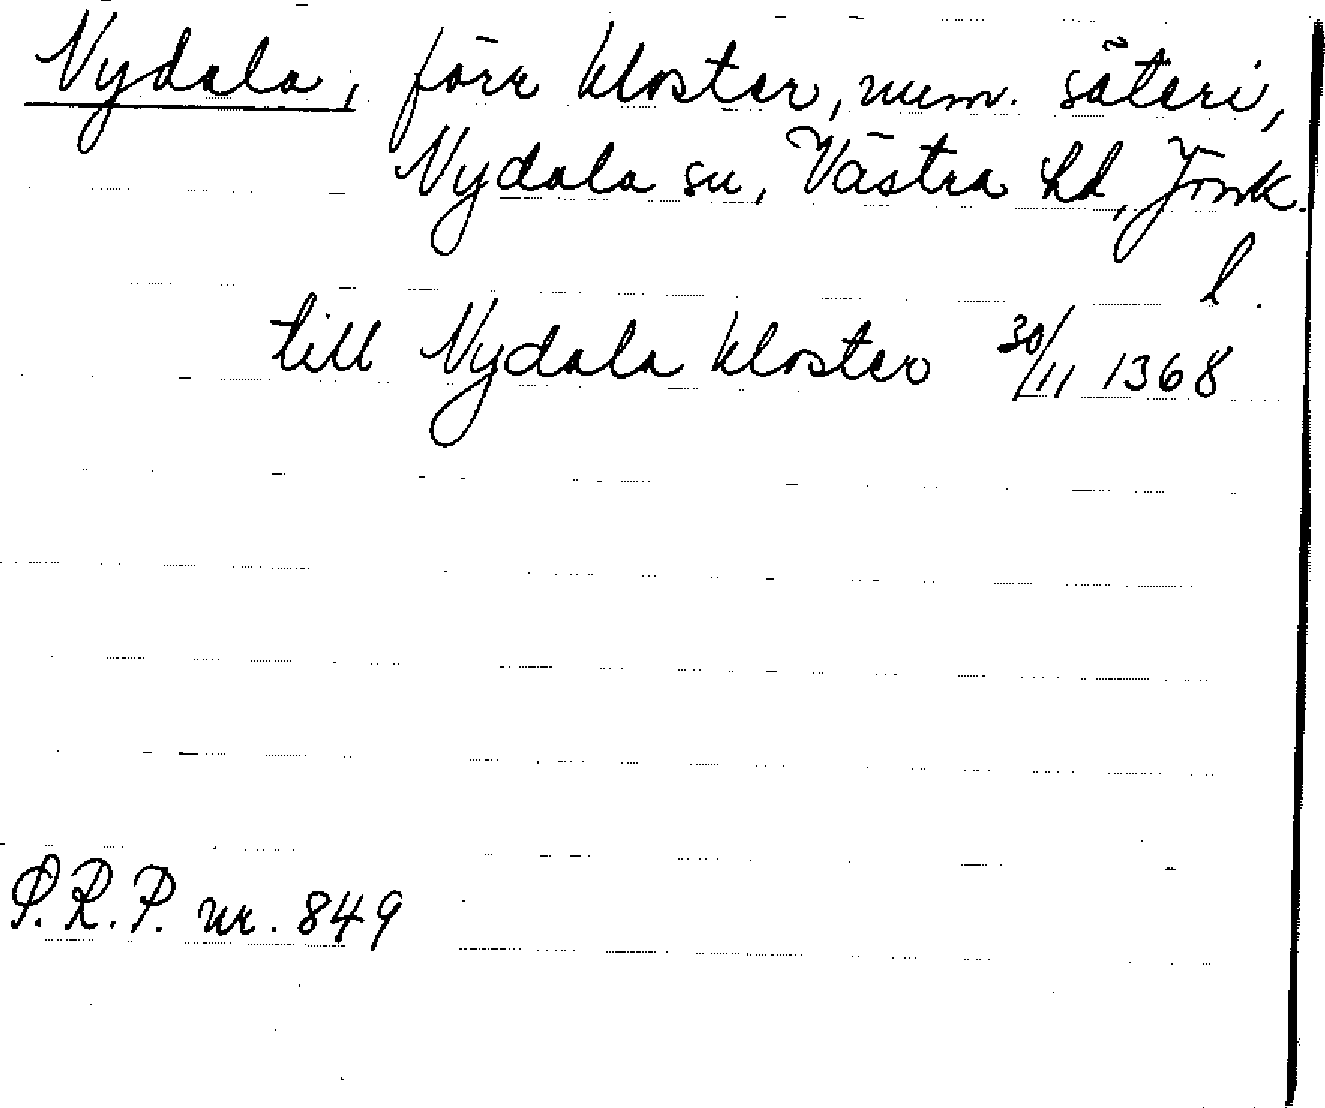 Nydala, förr kloster, num. säteri,
Nydala sn, Västra hd, Jönk.
l.
till Nydala kloster 30/11 1368
P.R.P. nr. 849